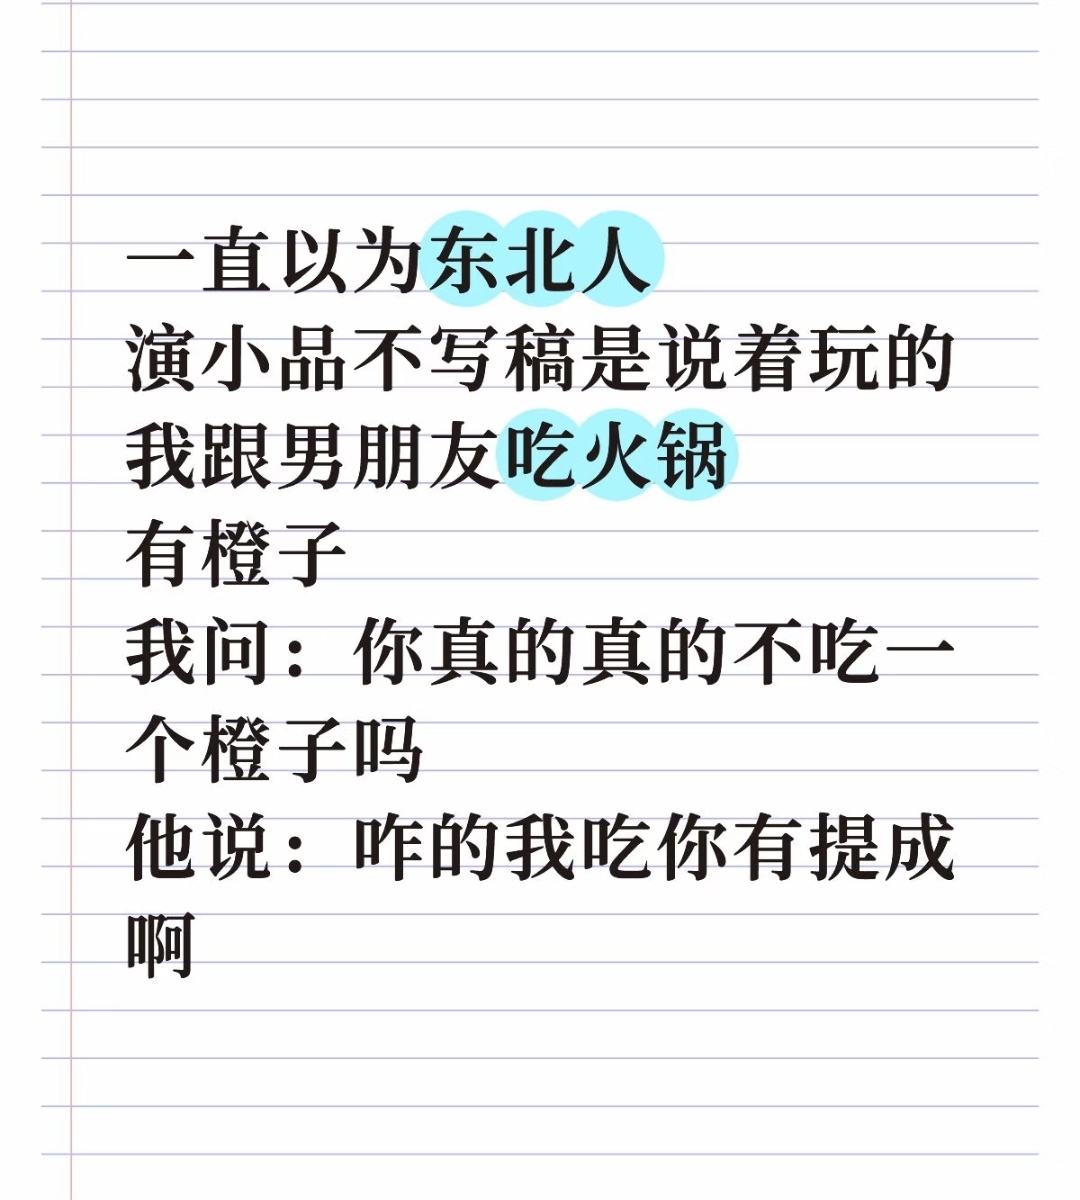 一直以为东北人
演小品不写稿是说着玩的
我跟男朋友吃火锅
有橙子
我问：你真的真的不吃一
个橙子吗
他说：咋的我吃你有提成
啊